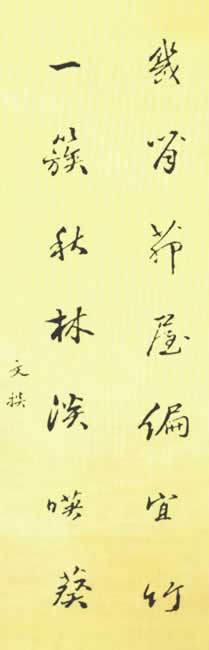 幾間茆屋偏宜竹
一簇秋林淡暎葵
文掞